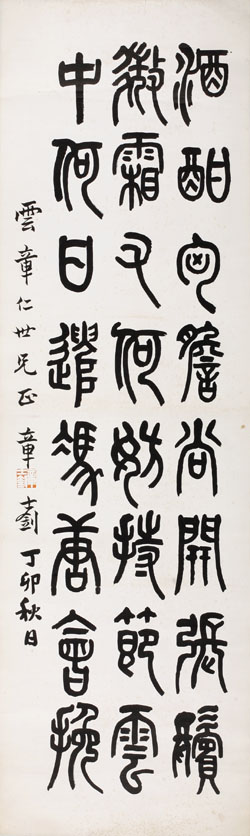 酒酣匈膽尚開張鬢
微霜又何妨持節雲
中何日遣馮唐會挽
雲章仁世兄正 章士釗 丁卯秋日